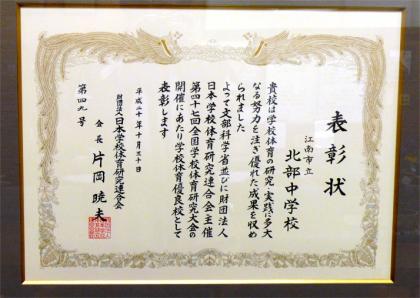 表彰状
江南市立
北部中学校
貴校は学校体育の研究・実践に多大
なる努力を注ぎ優れた成果を収め
られました
よって文部科学省並びに財団法人
日本学校体育研究連合会主催
第四十七回全国学校体育研究大会の
開催にあたり学校体育優良校として
表彰します
平成二十年十月三十日
財団法人日本学校体育研究連合会
会長 片岡暁夫
第四九号